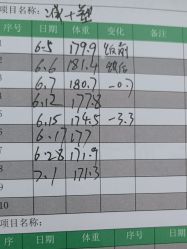 项目名称：减+塑
序号 日期 体重 变化 备注
1 6.5 179.9 饭前
2 6.6 181.4 饭后
3 6.7 180.7 -0.7
4 6.12 177.8
5 6.15 174.5 -3.3
6 6.17 177
7 6.28 171.9
8 7.1 171.3
9
10
项目名称：
序 日期 体重 变化 备注